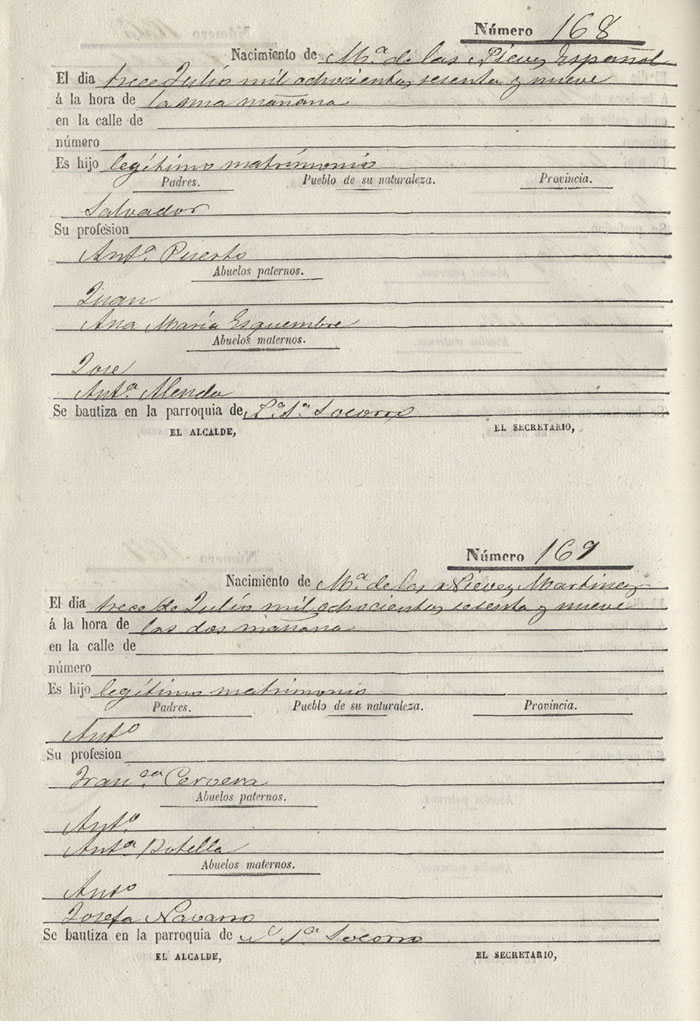 Número 168
Nacimiento de Mª de las Nieves Español
El dia trece Julio mil ochocientos sesenta y nueve
á la hora de la una mañana
en la calle de
número
Es hijo legítimo matrimonio
Padres. Pueblo de su naturaleza. Provincia.
Salvador
Su profesion
Antª Puerto
Abuelos paternos.
Juan
Ana María Esquembre
Abuelos maternos.
Jose
Antª Alenda
Se bautiza en la parroquia de Nª Sª Socorro
EL ALCALDE, EL SECRETARIO,
Número 169
Nacimiento de Mª de las Nieves Martinez
El dia trece de Julio mil ochocientos sesenta y nueve
á la hora de las dos mañana
en la calle de
número
Es hijo legítimo matrimonio
Padres. Pueblo de su naturaleza. Provincia.
Antº
Su profesion
Franca Cervera
Abuelos paternos.
Antº
Antª Botella
Abuelos maternos.
Antº
Josefa Navarro
Se bautiza en la parroquia de Nª Sª Socorro
EL ALCALDE, EL SECRETARIO,